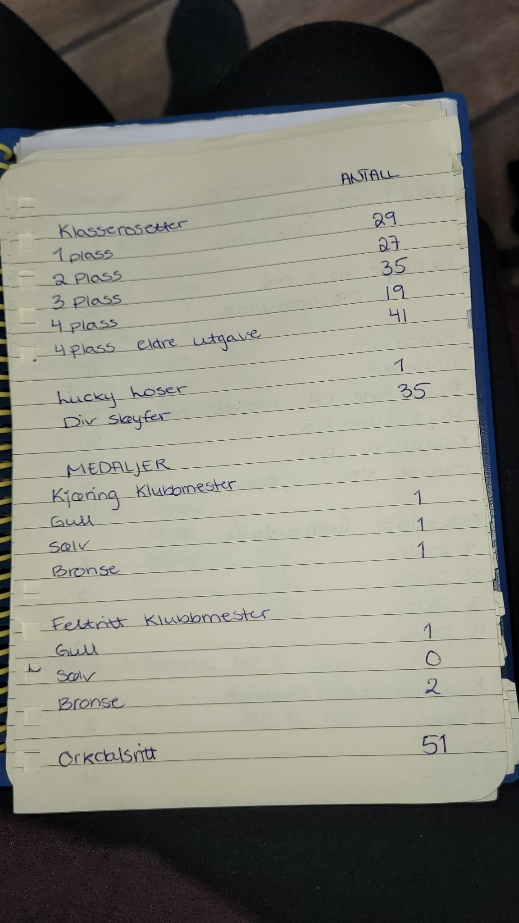 ANTALL
Klasserosetter
1 plass 29
2 plass 27
3 plass 35
4 plass 19
4 plass eldre utgave 41
Lucky loser 1
Div sløyfer 35
MEDALJER
Kjøring Klubbmester
Gull 1
Sølv 1
Bronse 1
Feltritt Klubbmester
Gull 1
Sølv 0
Bronse 2
Orkdalsritt 51